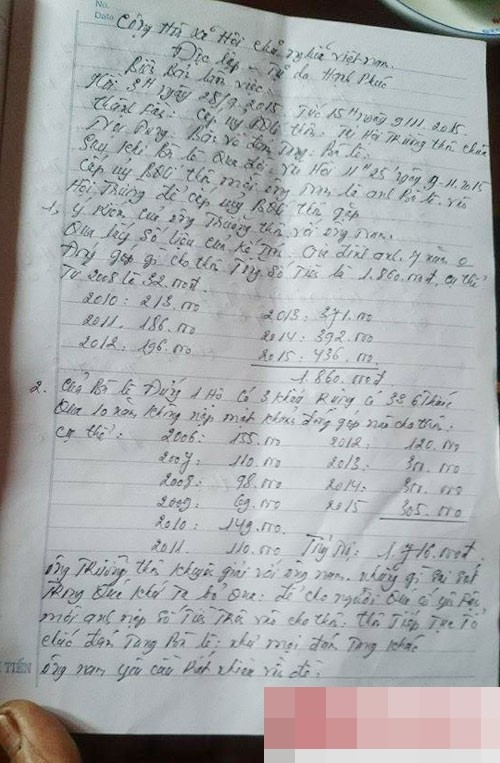 No.
Data
Cộng Hòa xã Hội chủ nghĩa việt nam.
Độc lập - Tự do Hạnh Phúc
Biên Bản làm việc:
Hồi 3H ngày 28/9.2015. Tức 15H ngày 9.11.2015.
Thành Phần: Cấp ủy BQL thôn: Tại Hội Trường thôn
Nội Dung: Bàn về đám Tang: Bà lê;
Sau khi Bà lê Qua đời, vào Hồi 11H25' ngày 9-11.2015
Cấp ủy BQL thôn mời ông nam là anh Bà lê vào
Hội Trường để cấp ủy BQL thôn gặp
1, ý kiến của ông Trưởng thôn với ông nam.
Qua lấy số liệu của kế toán: Gia đình anh 7 năm
Đóng góp gì cho thôn Tổng số Tiền là 1.860.000đ, cụ thể
Từ 2008 là 32.000đ
2010: 213.000 2013: 371.000
2011. 186.000 2014: 392.000
2012: 196.000 2015: 436.000
1.860.000đ
2. Của Bà lê Đứng 1 Hộ có 3 khẩu Ruộng có 336 thước
Qua 10 năm không nộp một khoản đóng góp nào cho thôn:
cụ thể: 2006: 155.000 2012: 120.000
2007: 110.000 2013: 300.000
2008: 98.000 2014: 300.000
2009: 69.000 2015 305.000
2010: 149.000
2011. 110.000 1.716.000đ
ông Trưởng thôn khuyên giải với ông nam. những gì sai sót
Trong Quá khứ Ta bỏ Qua: để cho người Quá cố
mời anh nộp số Tiền Trên vào cho thôn: thôn Tiếp Tục Tổ
chức đám Tang Bà lê: như mọi đám Tang khác
ông nam yêu cầu vấn đề:
TIẾN